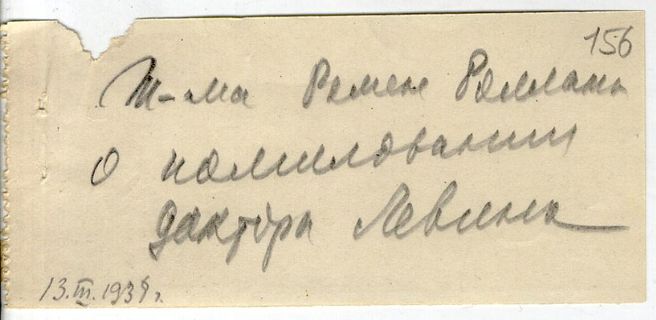 156
Т-ма Ромен Роллана
о помиловании
доктора Левина
13.III.1938 г.